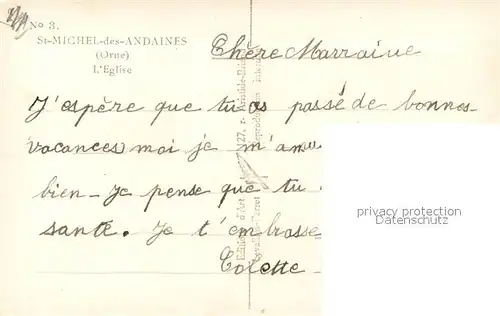 No 3.
St-MICHEL-des-ANDAINES
(Orne)
L'Eglise
Chère Marraine
J'espère que tu as passé de bonnes
vacances moi je m'amu
bien - Je pense que tu
santé. Je t'embrasse
Colette -
privacy protection
Datenschutz